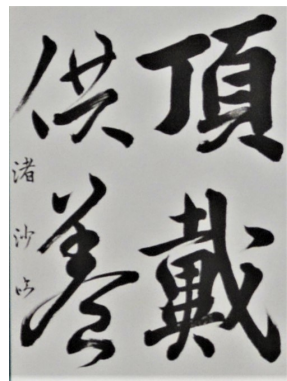 頂戴
供養
渚沙